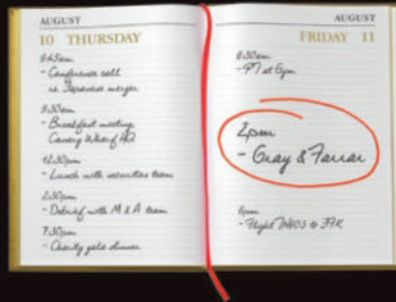 AUGUST
10 THURSDAY
6:45am
- Conference call
re Japanese merger
9:30am
- Breakfast meeting
Canary Wharf HQ
12:30pm
- Lunch with securities team
2:30pm
- Debrief with M & A team
7:30pm
- Charity gala dinner
AUGUST
FRIDAY 11
6:30am
- PT at Gym
2pm
- Gray & Farrar
6pm
- Flight to JFK